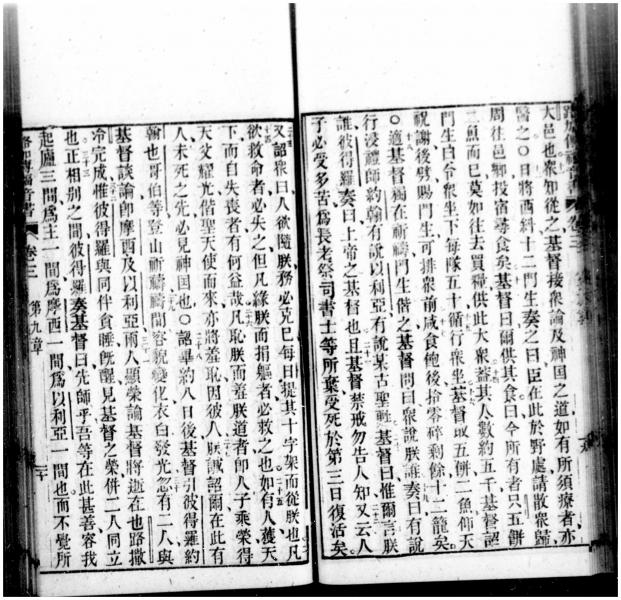 大邑也衆知從之基督接衆論及神国之道如有所須療者亦
醫之〇日將西斜十二門生奏之曰臣在此於野處請散衆歸
周徃邑鄉投宿尋食矣基督曰爾供其食曰今所有者只五餅
二魚而已莫如徃去買糧供此大衆葢其人數約五千基督詔
門生曰令衆坐下每隊五十循行衆坐基督取五餅二魚仰天
祝謝後擘賜門生可排衆前咸食飽後拾零碎剩餘十二籠矣
〇適基督獨在祈禱門生偕之基督問曰衆說朕誰奏曰有說
行浸禮師約翰有說以利亞有說某古聖甦基督曰惟爾言朕
誰彼得羅奏曰上帝之基督也且基督禁戒勿告人知又云人
子必受多苦爲長老祭司書士等所棄受死於第三日復活矣
又詔衆曰人欲隨朕務必克己每日提其十字架而從朕也凡
欲救命者必失之但凡緣朕而捐軀者必救之也如有人獲天
下而自失喪者有何益哉凡恥朕而羞朕道者卽人子乘榮得
天父耀光偕聖天使而來亦將羞恥因彼人朕誠詔爾在此有
人未死之先必見神国也〇詔畢約八日後基督引彼得羅約
翰也哥伯等登山祈禱禱間容貌變化衣白發光忽有二人與
基督談論卽摩西及以利亞兩人顯榮論基督將逝在也路撒
冷完成惟彼得羅與同伴貪睡旣醒見基督之榮併二人同立
也正相別之間彼得羅奏基督曰先師乎吾等在此甚善容我
起廬三間爲主一間爲摩西一間爲以利亞一間也而不覺所
卷三 第九章